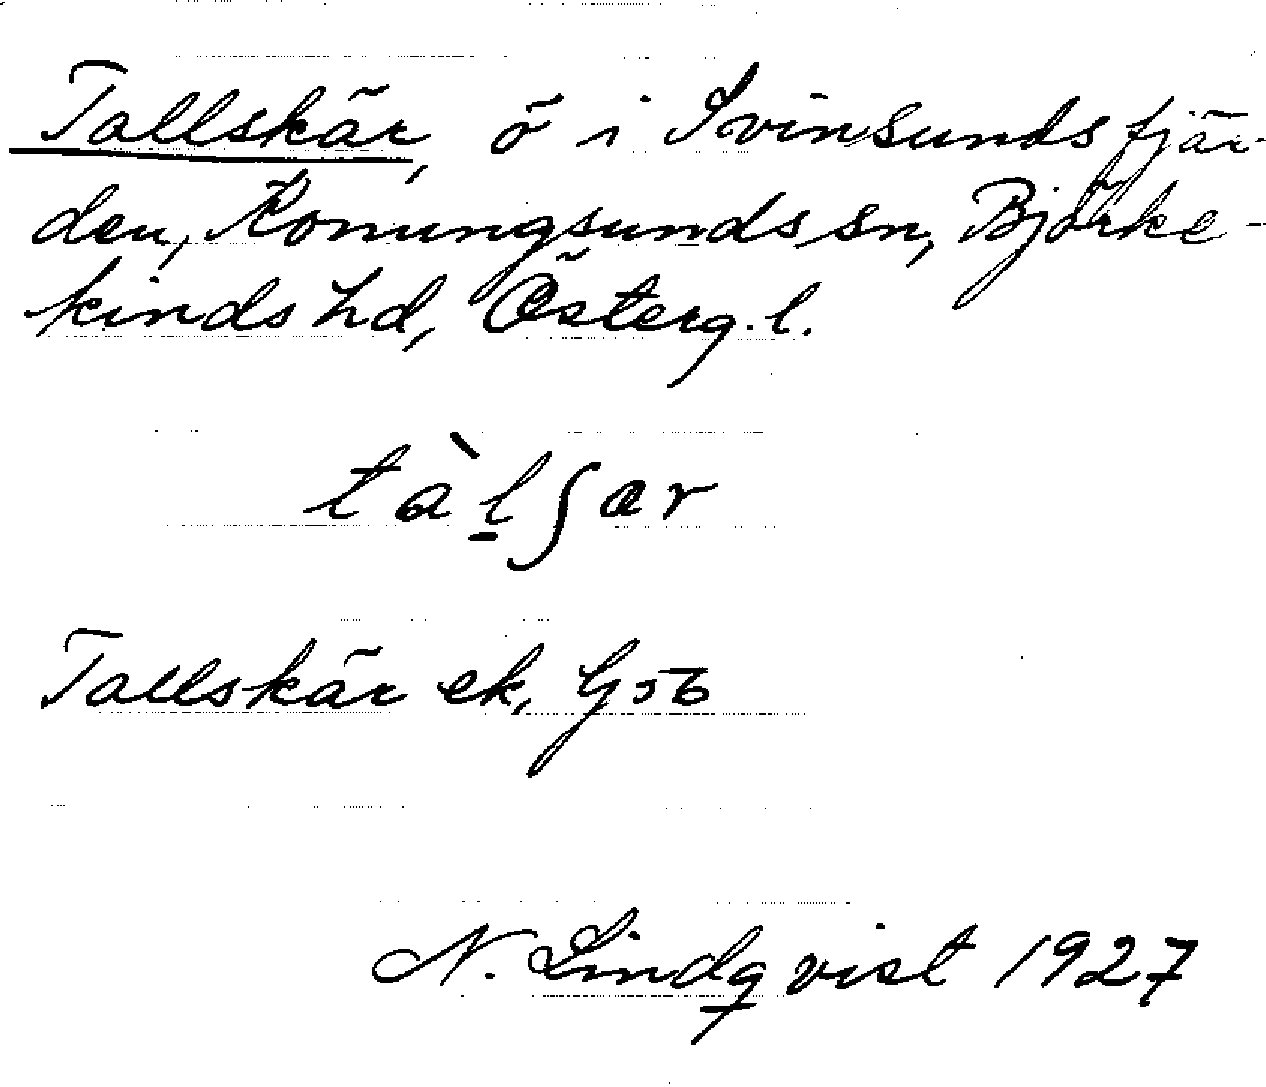 Tallskär, ö i Svinsundsfjär-
den, Konungsunds sn, Björke-
kinds hd, Österg. l.
tàl̲ʃær
Tallskär ek, G56
N. Lindqvist 1927